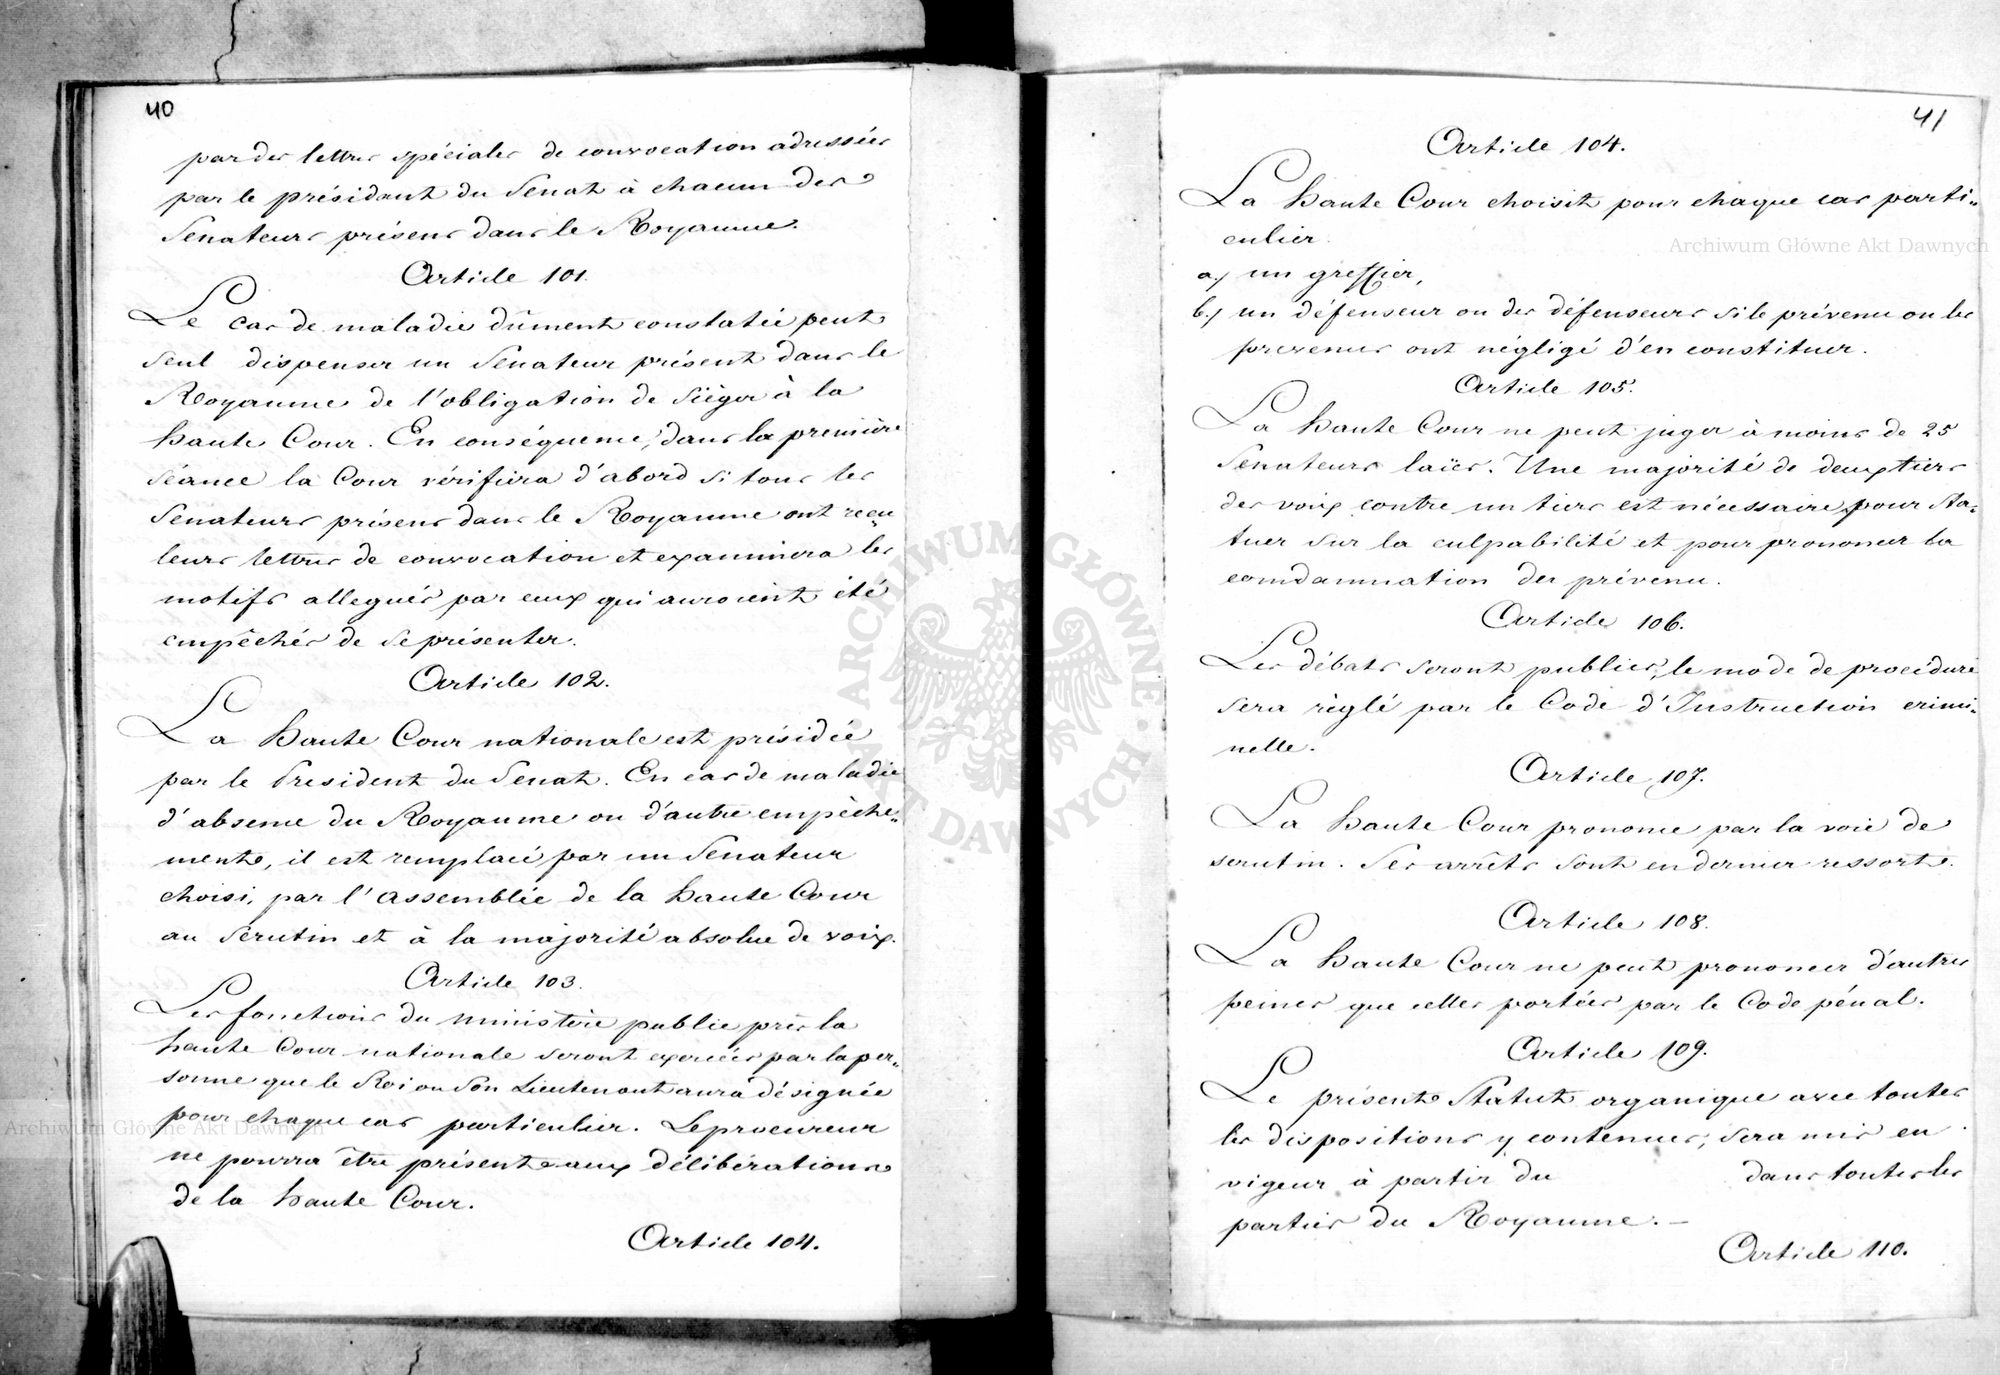 40
par des lettres spéciales de convocation adressées
par le président du Senat à chacun des
Senateurs présens dans le Royaume.
Article 101.
Le cas de maladie dûment constatée peut
seul dispenser un Senateur présent dans le
Royaume de l'obligation de Siéger à la
haute Cour. En conséquence, dans la première
séance la Cour vérifiera d'abord si tous les
Senateurs présens dans le Royaume ont reçu
leurs lettres de convocation et examinera les
motifs allegués par eux qui auroient été
empêchés de se présenter.
Article 102.
La haute Cour nationale est présidée
par le President du Senat. En cas de maladie
d'absence du Royaume ou d'autre empêche-
ments, il est remplacé par un Senateur
choisi, par l'assemblée de la haute Cour
au Scrutin et à la majorité absolue de voix.
Article 103.
Les fonctions du ministère public près la
haute Cour nationale seront exercées par la per-
sonne que le Roi ou Son Lieutenant aura désignée
pour chaque cas particulier. Le procureur
ne pourra être présent aux délibérations
de la haute Cour.
Article 104.
41
Article 104.
La haute Cour choisit pour chaque cas parti-
culier.
a./ un greffier,
b./ un défenseur ou des défenseurs si le prévenu ou les
prevenus ont négligé d'en constituer.
Article 105.
La haute Cour ne peut juger à moins de 25
Senateurs laïcs. Une majorité de deux tiers
des voix contre un tiers est nécessaire pour sta-
tuer sur la culpabilité et pour prononcer la
comdamnation des prévenu.
Article 106.
Les débats seront publics, le mode de procédure
sera règlé par le Code d'Instruction crimi-
nelle.
Article 107.
La haute Cour prononce par la voie de
scrutin. Ses arrêts sont en dernier ressort.
Article 108.
La haute Cour ne peut prononcer d'autres
peines que celles portées par le Code pénal.
Article 109.
Le présent Statut organique avec toutes
les dispositions y contenues, sera mis en
vigeur à partir du dans toutes les
parties du Royaume. —
Article 110.
Archiwum Główne Akt Dawnych
Archiwum Główne Akt Dawnych
ARCHIWUM GŁÓWNE · AKT DAWNYCH ·